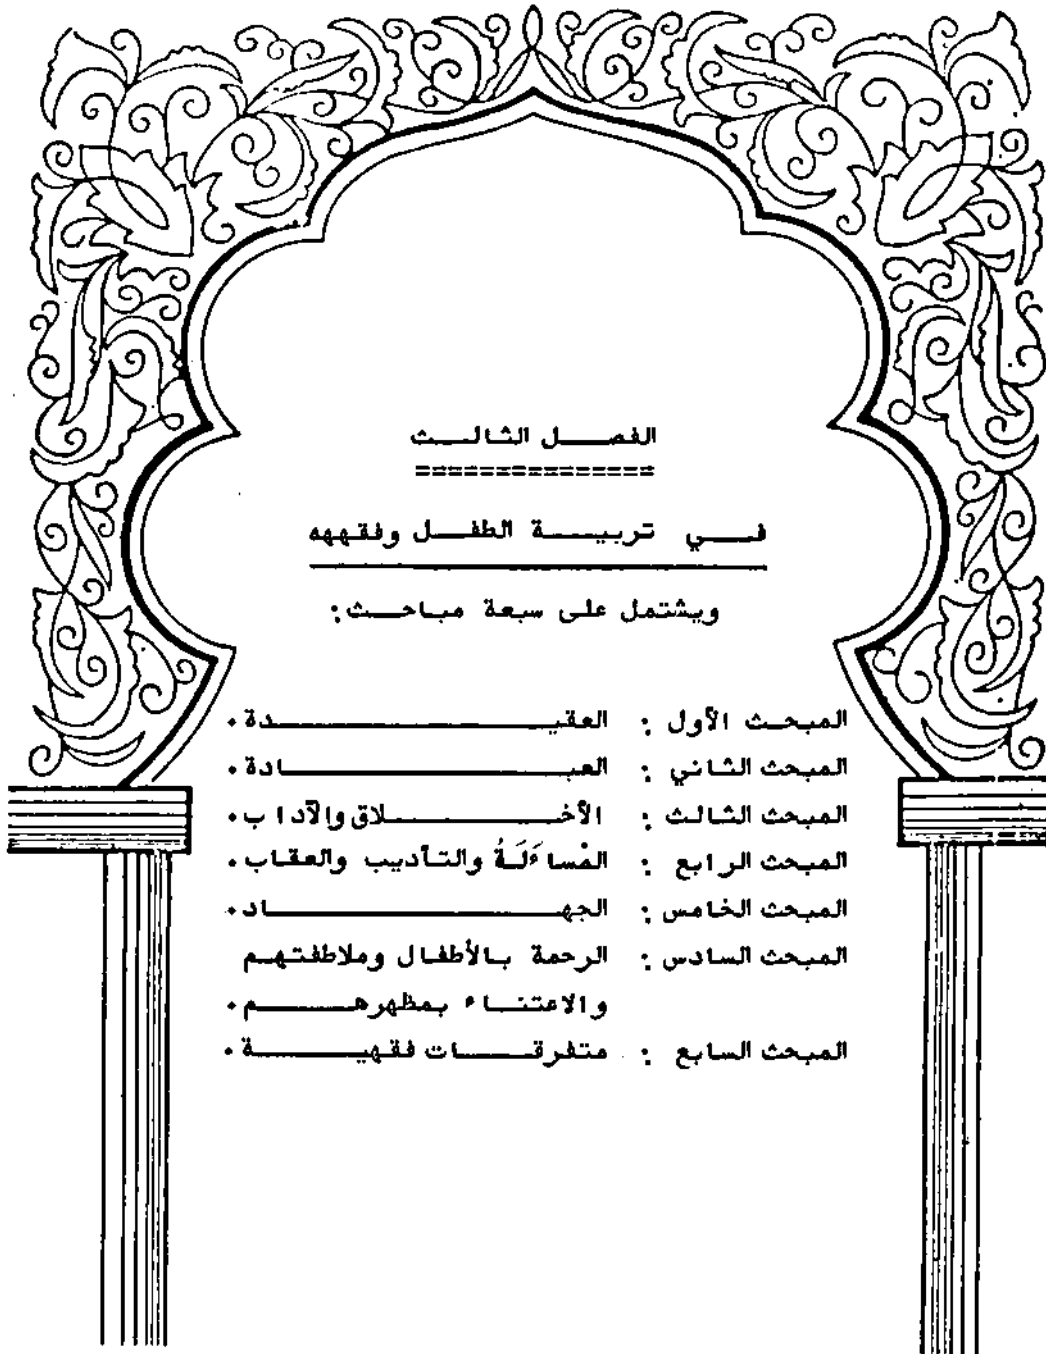 الفصل الثالث
في تربية الطفل وفقهه
ويشتمل على سبعة مباحث:
المبحث الأول : العقيدة.
المبحث الثاني : العبادة.
المبحث الثالث : الأخلاق والآداب.
المبحث الرابع : المْساءَلَةُ والتأديب والعقاب.
المبحث الخامس : الجهاد.
المبحث السادس : الرحمة بالأطفال وملاطفتهم
والاعتناء بمظهرهم.
المبحث السابع : متفرقات فقهية.